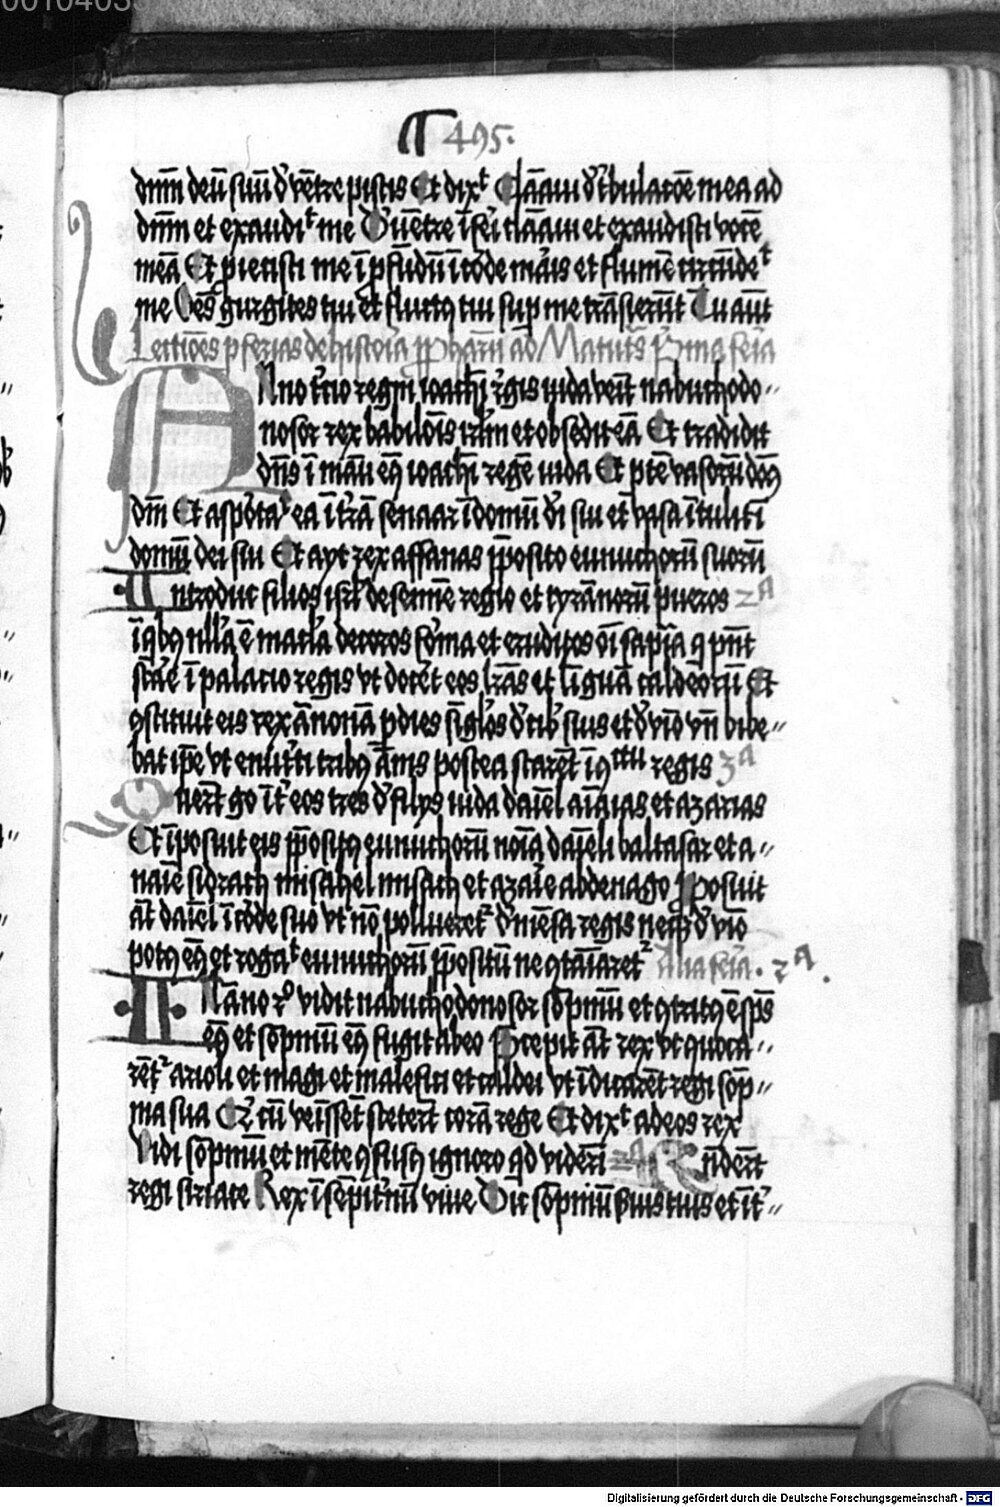 00104035
¶ 495.
dn̄m deū suū d̓ vētre piscis Et dixᵗ Clāaui d̓ t̓bulacōe mea ad
dn̄m et exaudiᵗ me D̓ uētre īferi clāaui et exaudisti vocē
meā Et proiecisti me ī p̄fūdū ī corde maris et flumē circūdeᵗ
me Oēs gurgites tui et fluctꝯ tui sup me trāsierūt Tu aūt
Lectiōes p ferias de historia ꝓphārū ad Matutīs Prima feria
Anno t̓cio regni ioachī r̓gis iuda venit nabuchodo〃
nosor rex babilōis irl̄m et obsedit eā Et tradidit
dn̄s ī manu eꝯ ioachī regē iuda Et ptē vasorū domꝯ
dn̄i Et asportaᵗ ea ī t̓rā senaar ī domū dei sui et vasa ītulit ī
domū dei sui Et ayt rex assanas p̄posito eunuchorū suorū
Introduc filios isrl̄ de semīe regio et tyrānorū pueros 2ᴬ
ī qꝰbꝯ nulla ē macula decoros forma et eruditos oī sapīa q pn̄t
stare ī palacio regis vt docēt eos lrās et liguā caldeorū Et
ꝯstituit eis rex ānonā p dies sīglos d̓ cib̓ suis et d̓ vīo vn̄ bibe〃
bat ipē vt enutriti tribꝯ ānis postea starēt ī ꝯᵗᵗᵘ regis 3ᴬ
uerūt go īt̓ eos tres d̓ filiis iuda daniel ananias et azarias
Et īposuit eis p̄positꝯ eunuchorū noīa danieli baltasar et a〃
nanie sidrach misahel misach et azarie abdenago Proposuit
āt daniel ī corde suo vt nō pollueretᵘʳ d̓ mēsa regis neqꝫ d̓ vīo
potꝯ eꝯ et rogaᵗ eunuchorū p̄positū ne ꝯtāiaretᵘʳ Alia feria. 2ᴬ.
In āno 2° vidit nabuchodonosor sōpniū et ꝯtritꝯ ē sp̄s
eꝯ et sōpniū eꝯ fugit ab eo Precepit āt rex vt ꝯuoca〃
rētᵘʳ arioli et magi et malefici et caldei vt īdicarēt regi sōp〃
nia sua Qui cū venissēt steterūt corā rege Et dixᵗ ad eos rex
Vidi sōpniū et mēte ꝯfusꝯ ignoro qd viderī 2ᴬ Rn̄derūt
regi siriace Rex ī sēpit̓nū viue Dic sōpniū suis tuis et īt̓〃
Digitalisierung gefördert durch die Deutsche Forschungsgemeinschaft - DFG